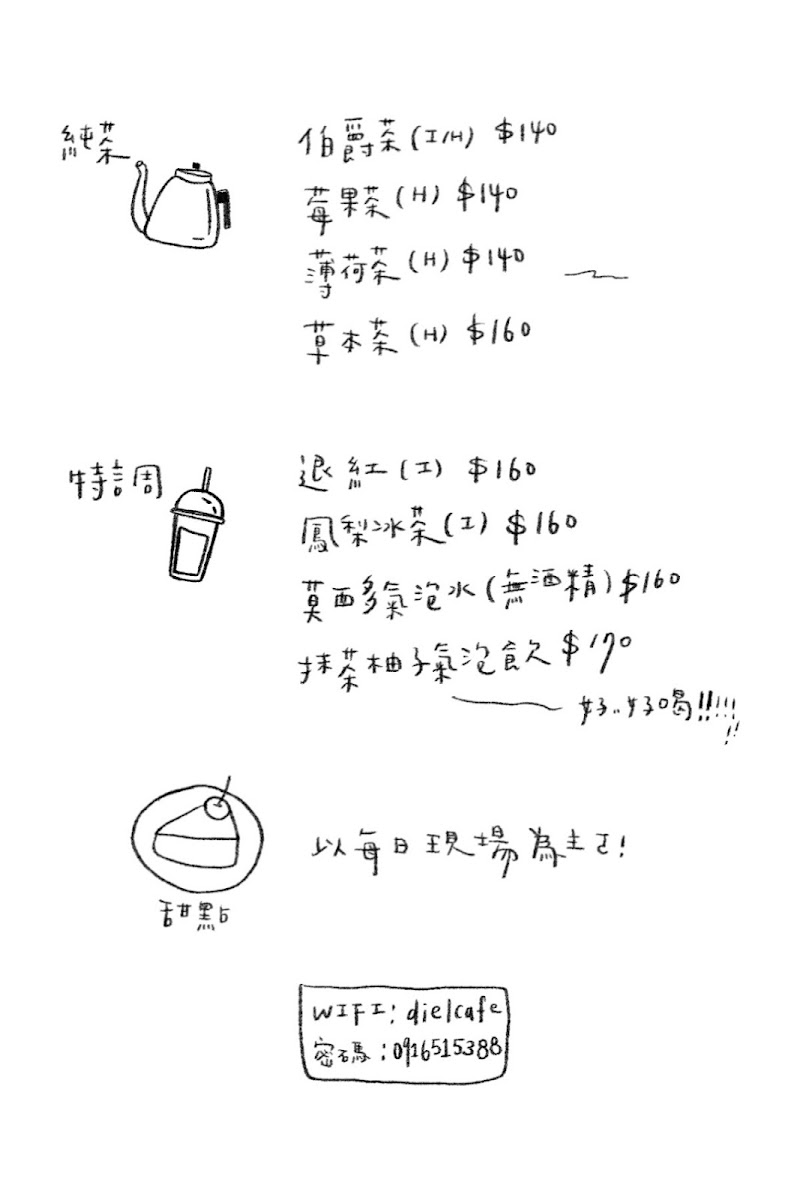 純茶
伯爵茶(I/H) $140
莓果茶(H) $140
薄荷茶(H) $140
草本茶(H) $160
特調
退紅(I) $160
鳳梨冰茶(I) $160
莫西多氣泡水(無酒精)$160
抹茶柚子氣泡飲 $170
好..好喝!!!!!!!
甜點
以每日現場為主ㄛ!
WIFI: die|cafe
密碼:0916515388